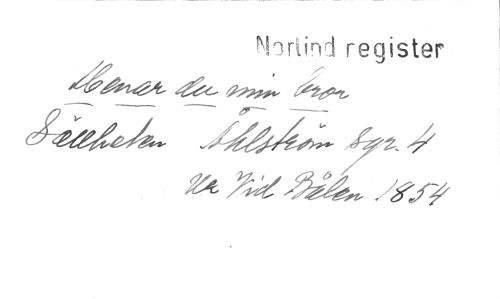 Norlind register
Menar du min bror
Säkheten Åhlström Syr. 4
Ur Vid Brålen 1854